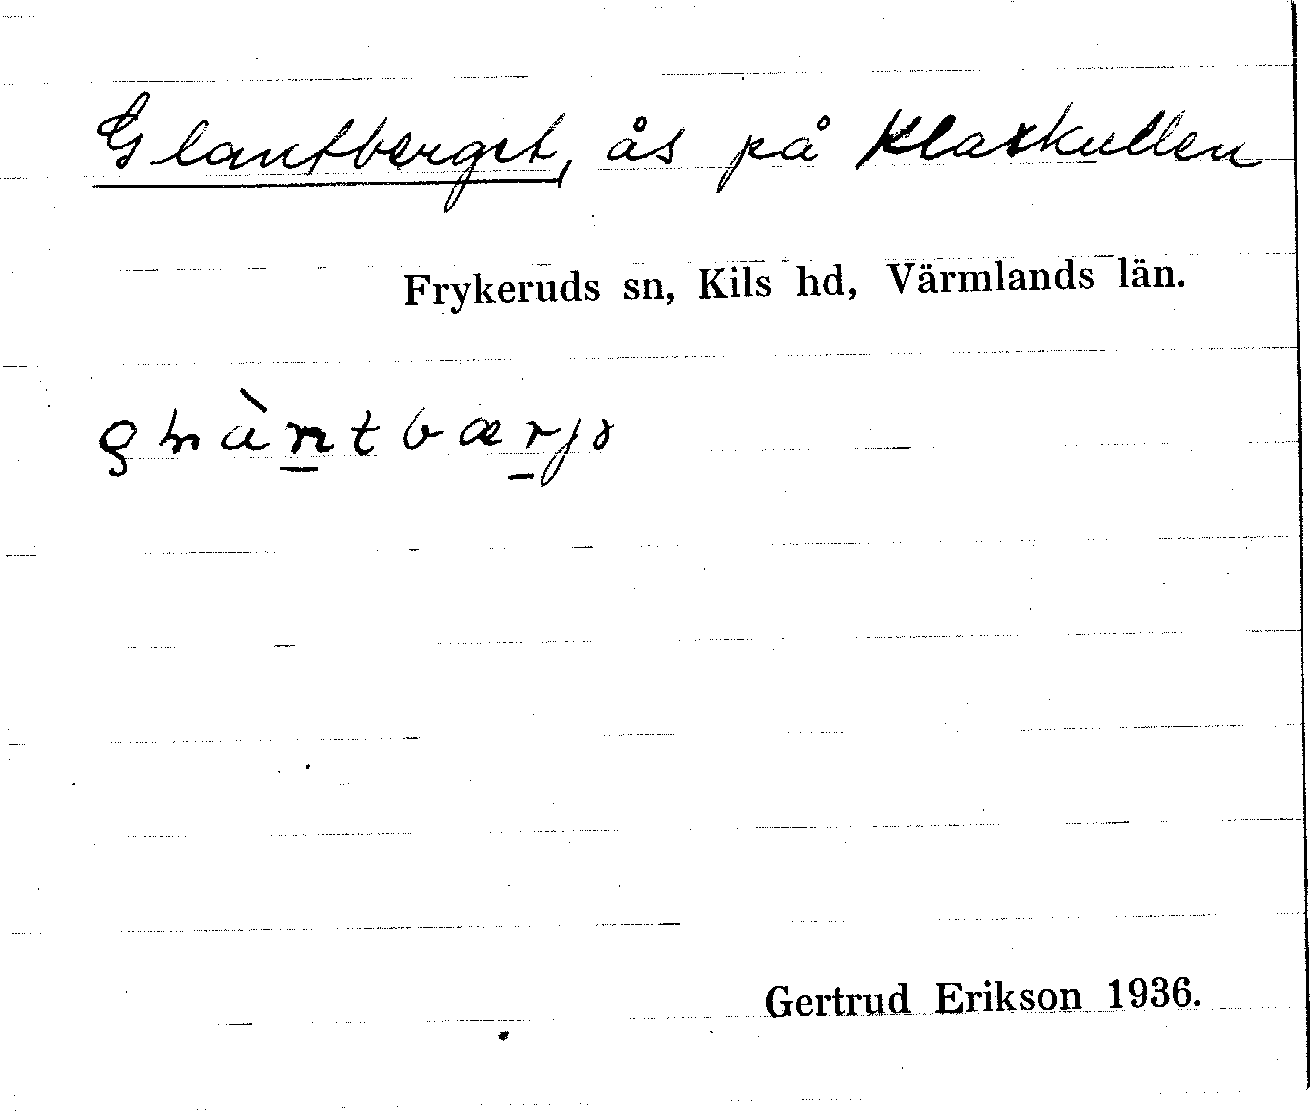 Glantberget, ås på Klaxkullen
Frykeruds sn, Kils hd, Värmlands län.
Gertrud Erikson 1936.